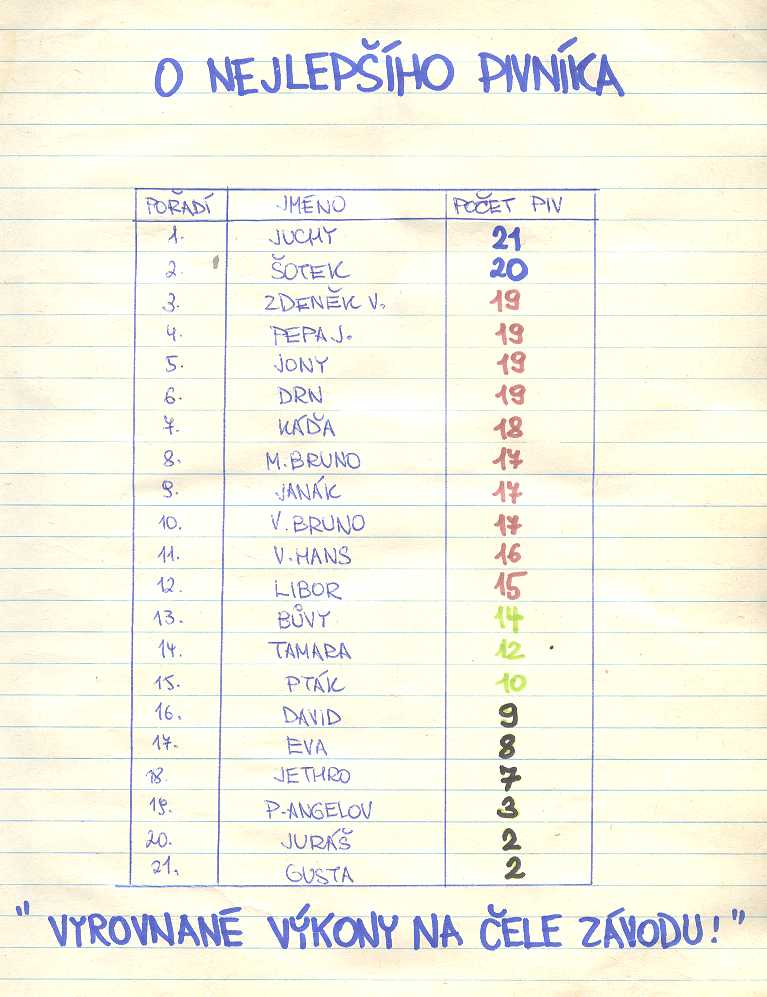 O NEJLEPŠÍHO PIVNÍKA
POŘADÍ JMÉNO POČET PIV
1. JUCHY 21
2. ŠOTEK 20
3. ZDENĚK V. 19
4. PEPA J. 19
5. JONY 19
6. DRN 19
7. KÁĎA 18
8. M. BRUNO 17
9. JANÁK 17
10. V. BRUNO 17
11. V. HANS 16
12. LIBOR 15
13. BŮVY 14
14. TAMARA 12
15. PTÁK 10
16. DAVID 9
17. EVA 8
18. JETHRO 7
19. P. ANGELOV 3
20. JURÁŠ 2
21. GUSTA 2
" VYROVNANÉ VÝKONY NA ČELE ZÁVODU! "